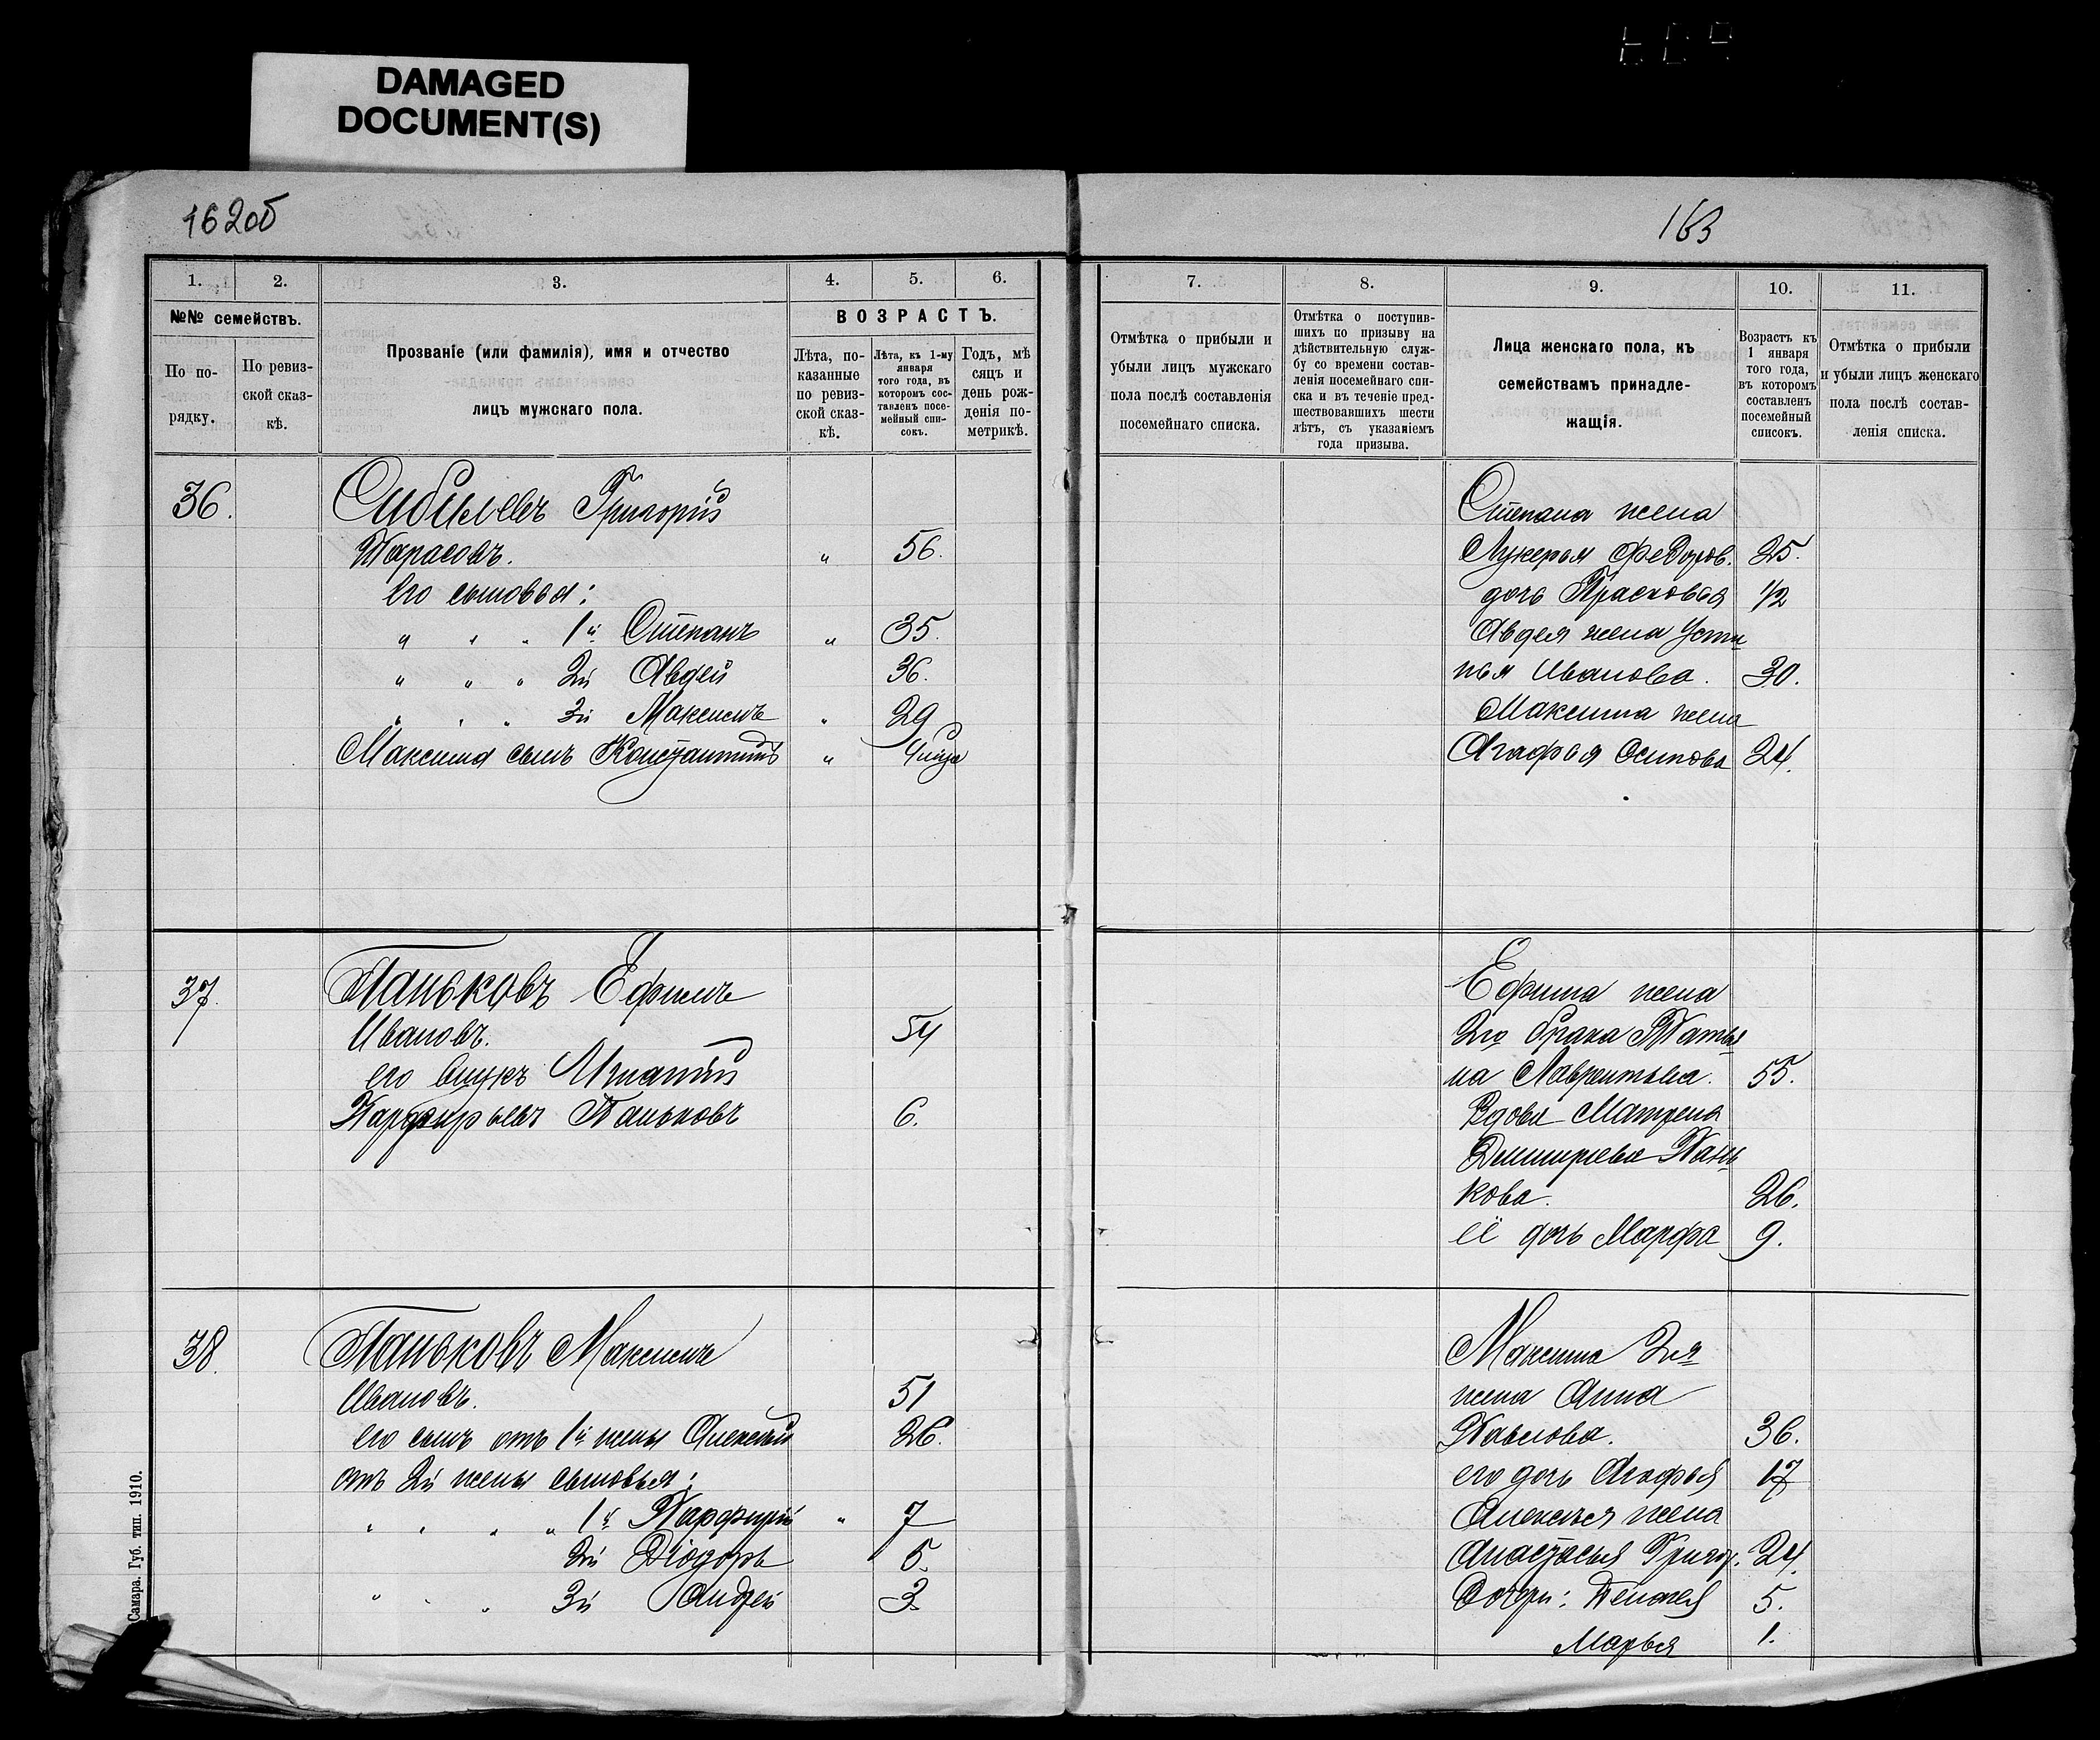 DAMAGED
DOCUMENT(S)
162об
163
1.
2.
3.
4.
5.
6.
№№ семействъ.
По по-
рядку.
По ревиз-
ской сказ-
кѣ.
Прозваніе (или фамилія), имя и отчество
лицъ мужскаго пола.
ВОЗРАСТЪ.
Лѣта, по-
казанные
по ревиз-
ской сказ-
кѣ.
Лѣта, къ 1-му
января
того года, въ
которомъ сос-
тавленъ посе-
мейный спи-
сокъ.
Годъ, мѣ
сяцъ и
день рож-
денія по-
метрикѣ.
7.
8.
9.
10.
11.
Отмѣтка о прибыли и
убыли лицъ мужскаго
пола послѣ составленія
посемейнаго списка.
Отмѣтка о поступив-
шихъ по призыву на
дѣйствительную служ-
бу со времени состав-
ленія посемейнаго спи-
ска и въ теченіе пред-
шествовавшихъ шести
лѣтъ, съ указаніемъ
года призыва.
Лица женскаго пола, къ
семействамъ принадле-
жащія.
Возрастъ къ
1 января
того года,
въ которомъ
составленъ
посемейный
списокъ.
Отмѣтка о прибыли
и убыли лицъ женскаго
пола послѣ состав-
ленія списка.
36.
Сибилевъ Григорій
Тарасовъ. " 56.
Его сыновья:
" " " 1й Степанъ " 35.
" " " 2й Авдей 36.
" " " 3й Максимъ " 29
Максима сынъ Константинъ "
Степана жена
Лукерья Федоров. 25.
дочь Прасковья 1/2
Авдея жена Усти
нья Иванова. 30.
Максима жена
Агафья Осипова 24.
37.
Паньковъ Ефимъ
Ивановъ. 54
его внукъ Игнатій
Парфирьевъ Паньковъ 6.
Ефима жена
2го брака Татья
на Лаврентьева. 55.
Вдова Матрена
Дмитриева Пань
кова. 26.
её дочь Марфа 9.
38.
Паньковъ Максимъ
Ивановъ. 51
его сынъ отъ 1й жены Алексей 26.
отъ 2й жены сыновья:
" " " " 1й Парфирій " 7
2й Діодоръ 5.
" " " 3й Андрей 3.
Максима 2я
жена Анна
Павлова. 36.
его дочь Агафья 17
Алексея жена
Анастасья Григор. 24.
Дочери: Пелагея 5.
Марья 1.
Самара. Губ. тип. 1910.